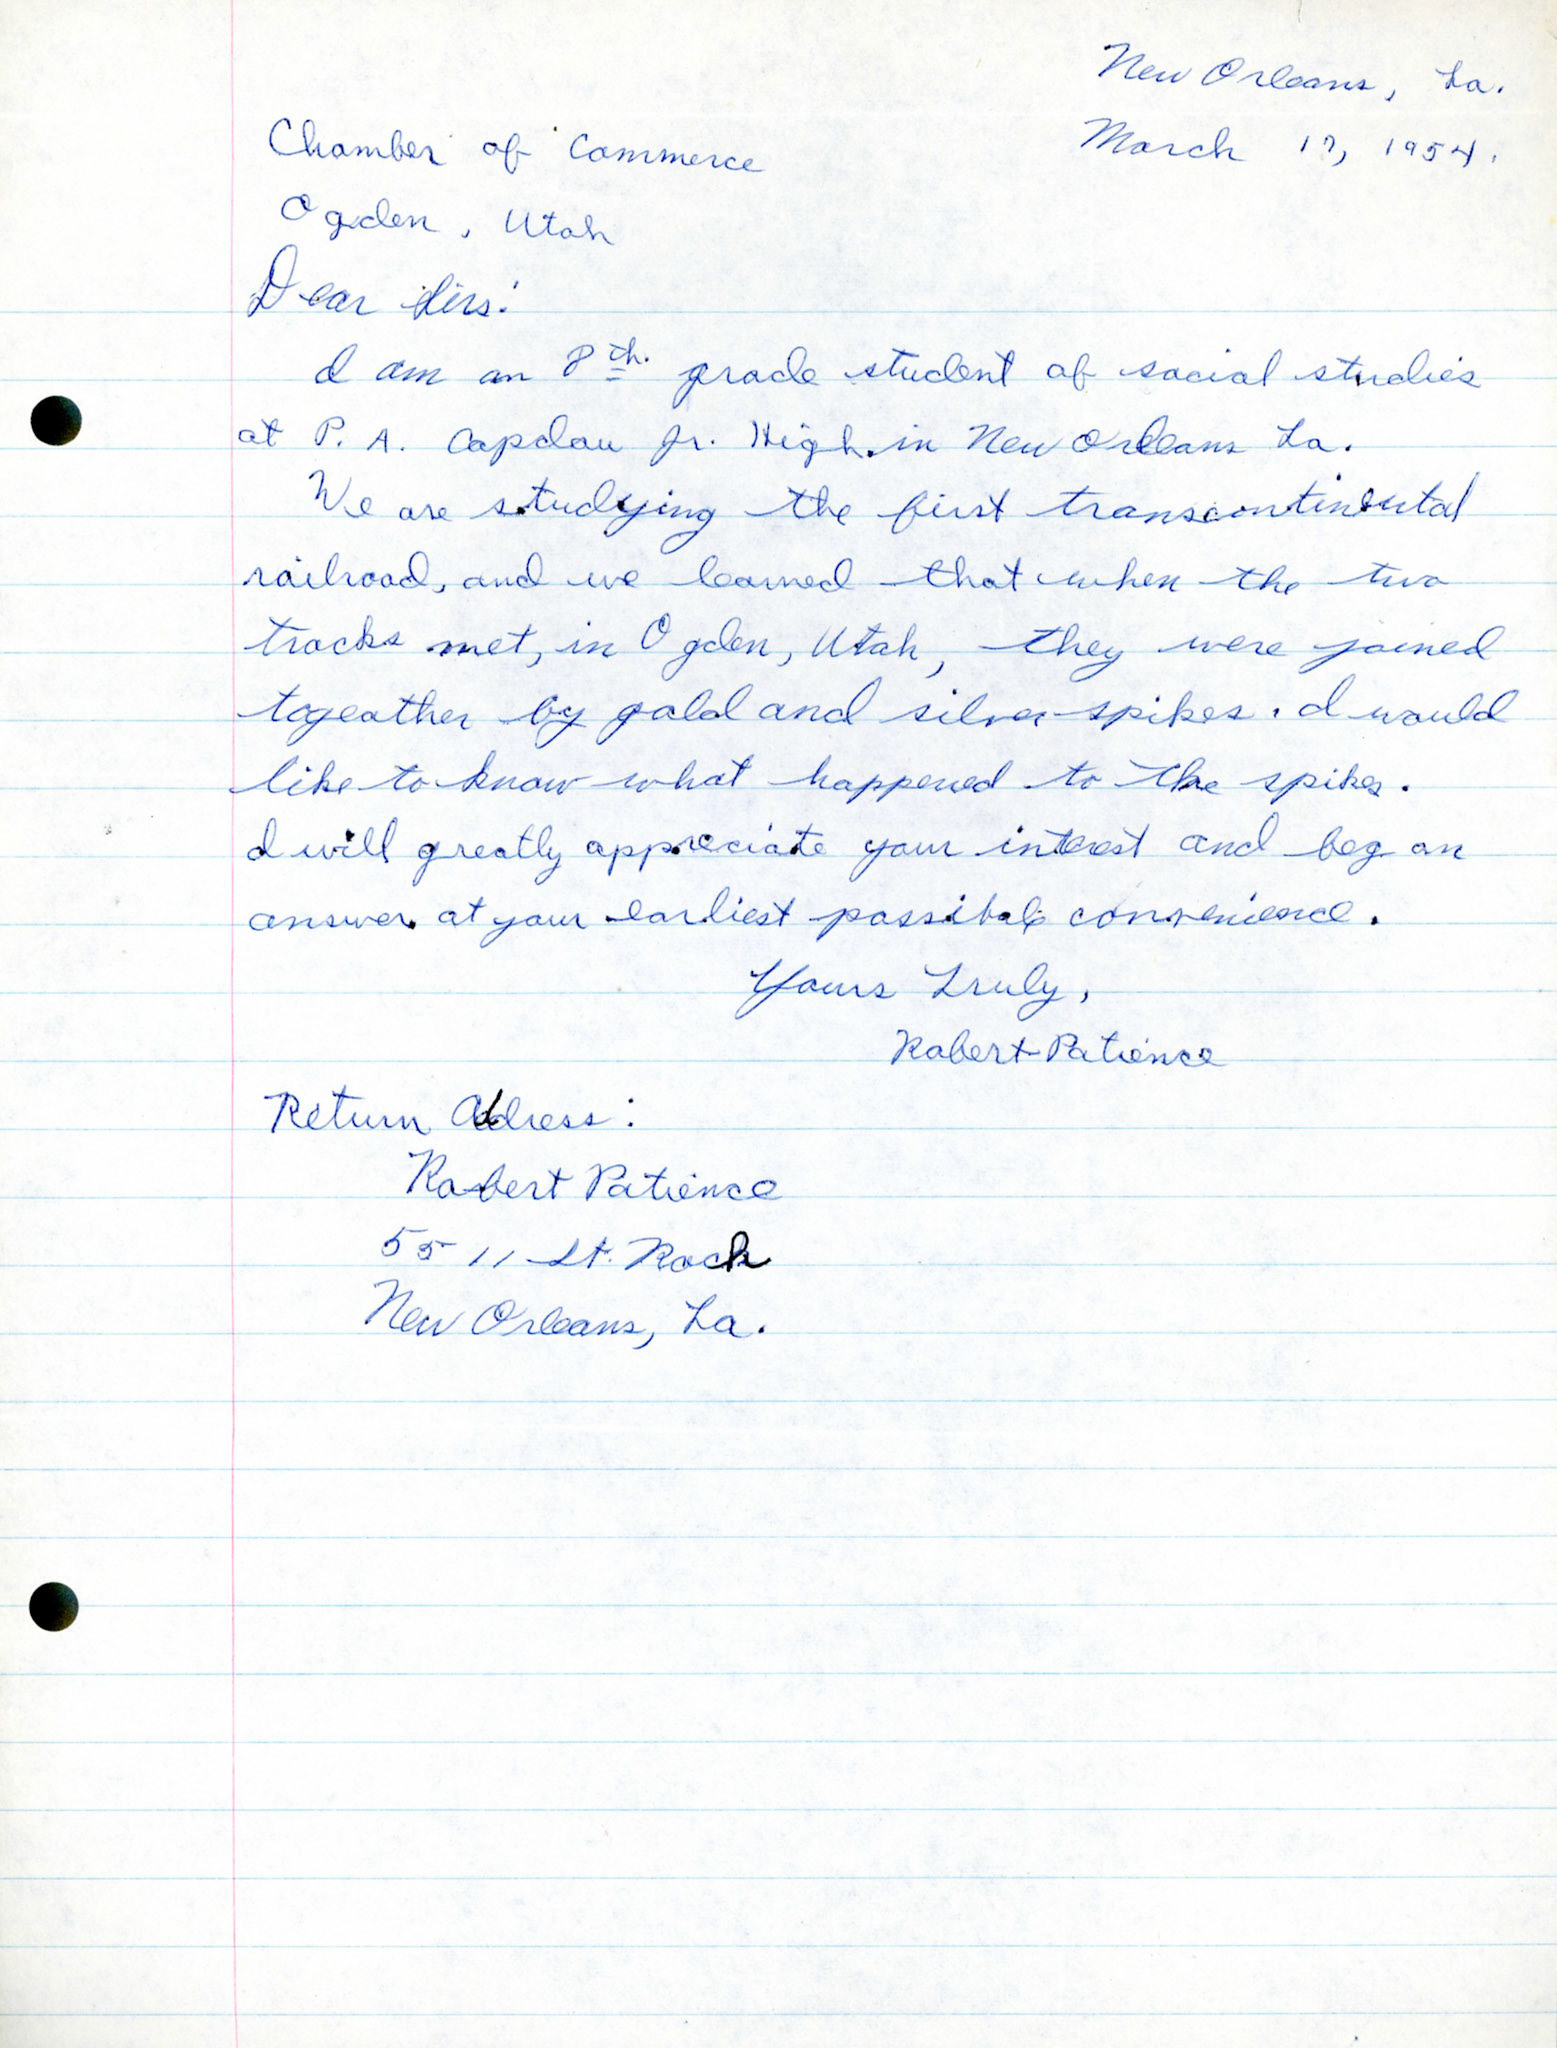 New Orleans, La.
March 17, 1954.
Chamber of Commerce
Ogden, Utah
Dear Sirs:
I am an 8th. grade student of social studies
at P. A. Capdau Jr. High. in New Orleans La.
We are studying the first transcontinental
railroad, and we learned that when the two
tracks met, in Ogden, Utah, they were joined
togeather by gold and silver spikes. I would
like to know what happened to the spikes.
I will greatly appreciate your interest and beg an
answer at your earliest possible convenience.
Yours Truly,
Robert Patience
Return Adress:
Robert Patience
5511 St. Roch
New Orleans, La.